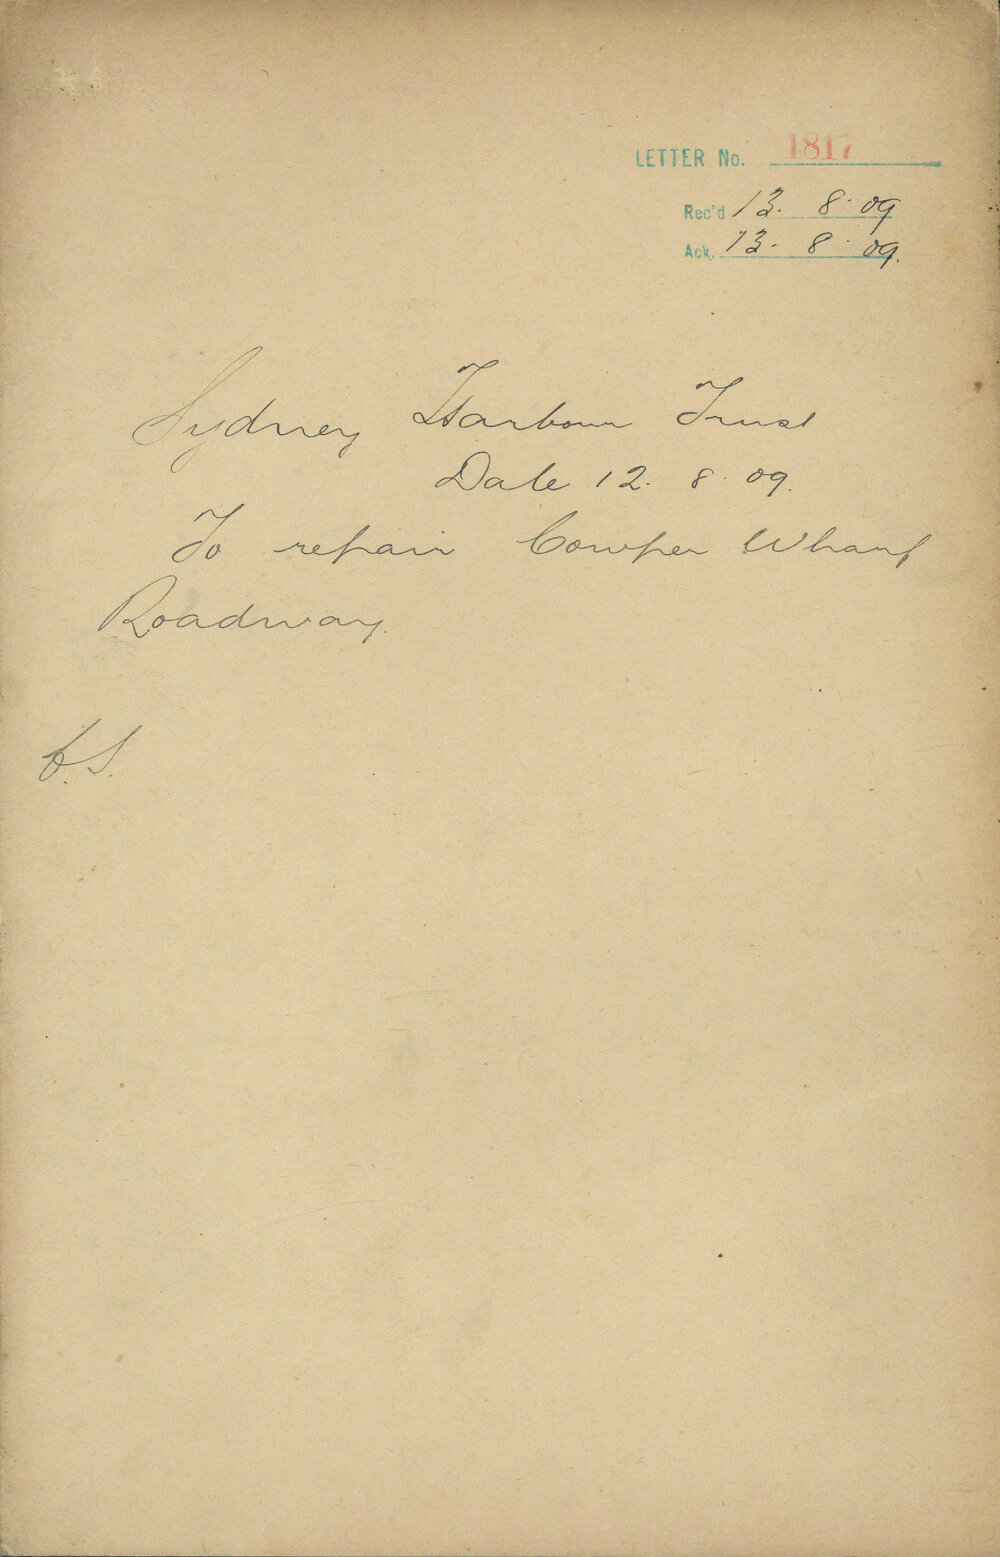 LETTER No. 1817
Rec'd 13. 8. 09
Ack. 13. 8. 09.
Sydney Harbour Trust
Date 12. 8. 09.
To repair Cowper Wharf
Roadway.